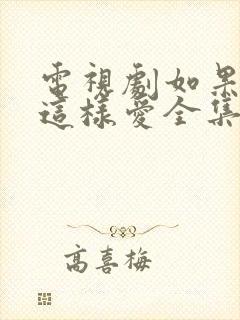 電視劇如果
這樣愛全集
高喜梅